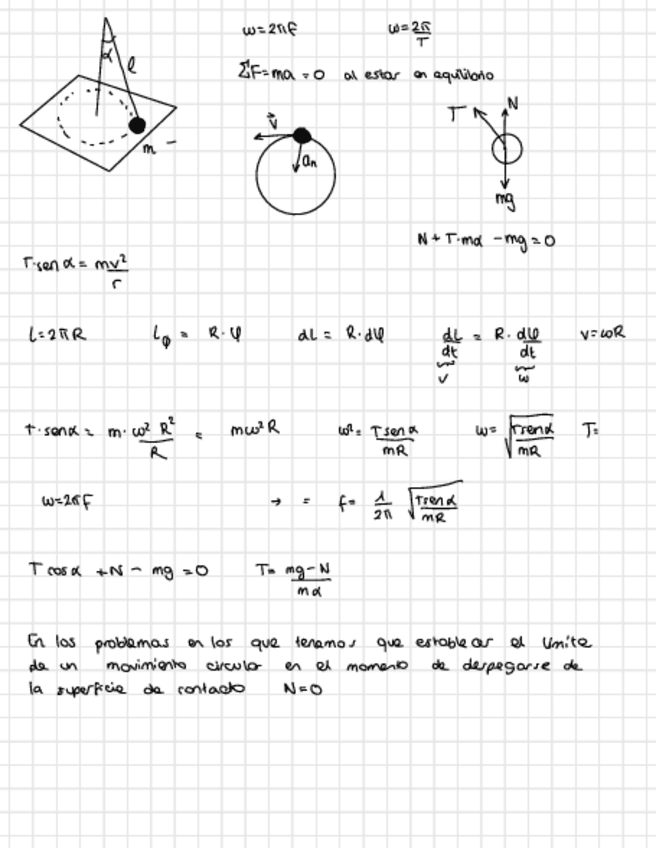 ω=2πf ω=2π/T
α l
ΣF=ma=0 al estar en equilibrio
m
v⃗ aₙ
T N
mg
N+T·mα -mg=0
T·sen α = mv²/r
l=2πR lφ = R·φ dL = R·dφ dL/dt = R·dφ/dt v=ωR
v ω
T·senα = m·ω² R²/R = mω²R ω²= T senα/mR ω= √(T senα/mR) T=
ω=2πf → = f= 1/2π √(T senα/mR)
T cosα +N - mg =0 T= mg-N/mα
En los problemas en los que tenemos que establecer el límite
de un movimiento circular en el momento de despegarse de
la superficie de contacto N=0